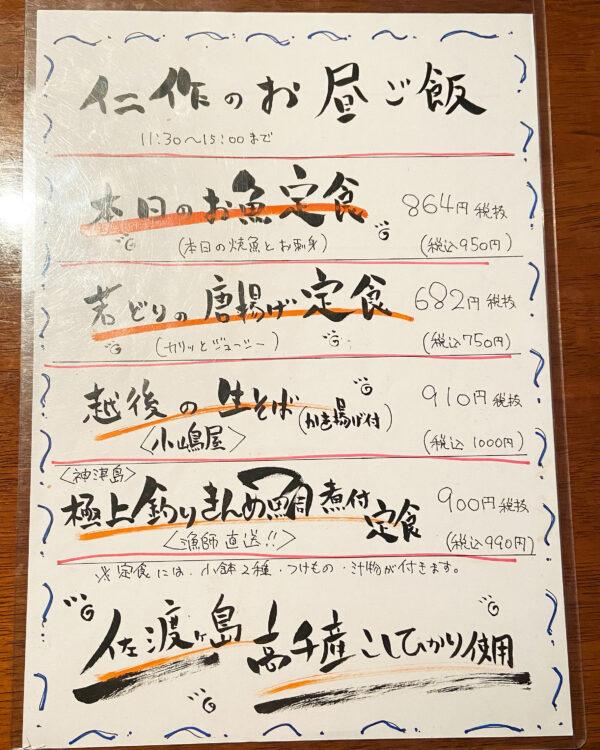 仁作のお昼ご飯
11:30〜15:00まで
本日のお魚定食 864円税抜
(本日の焼魚とお刺身) (税込950円)
若どりの唐揚げ定食 682円税抜
(カリッとジューシー) (税込750円)
越後の生そば(かき揚げ付) 910円税抜
〈小嶋屋〉 (税込1000円)
〈神津島〉
極上釣りきんめ鯛煮付定食 900円税抜
〈漁師直送!!〉 (税込990円)
※定食には・小鉢2種・つけもの・汁物が付きます。
佐渡ヶ島高千産こしひかり使用